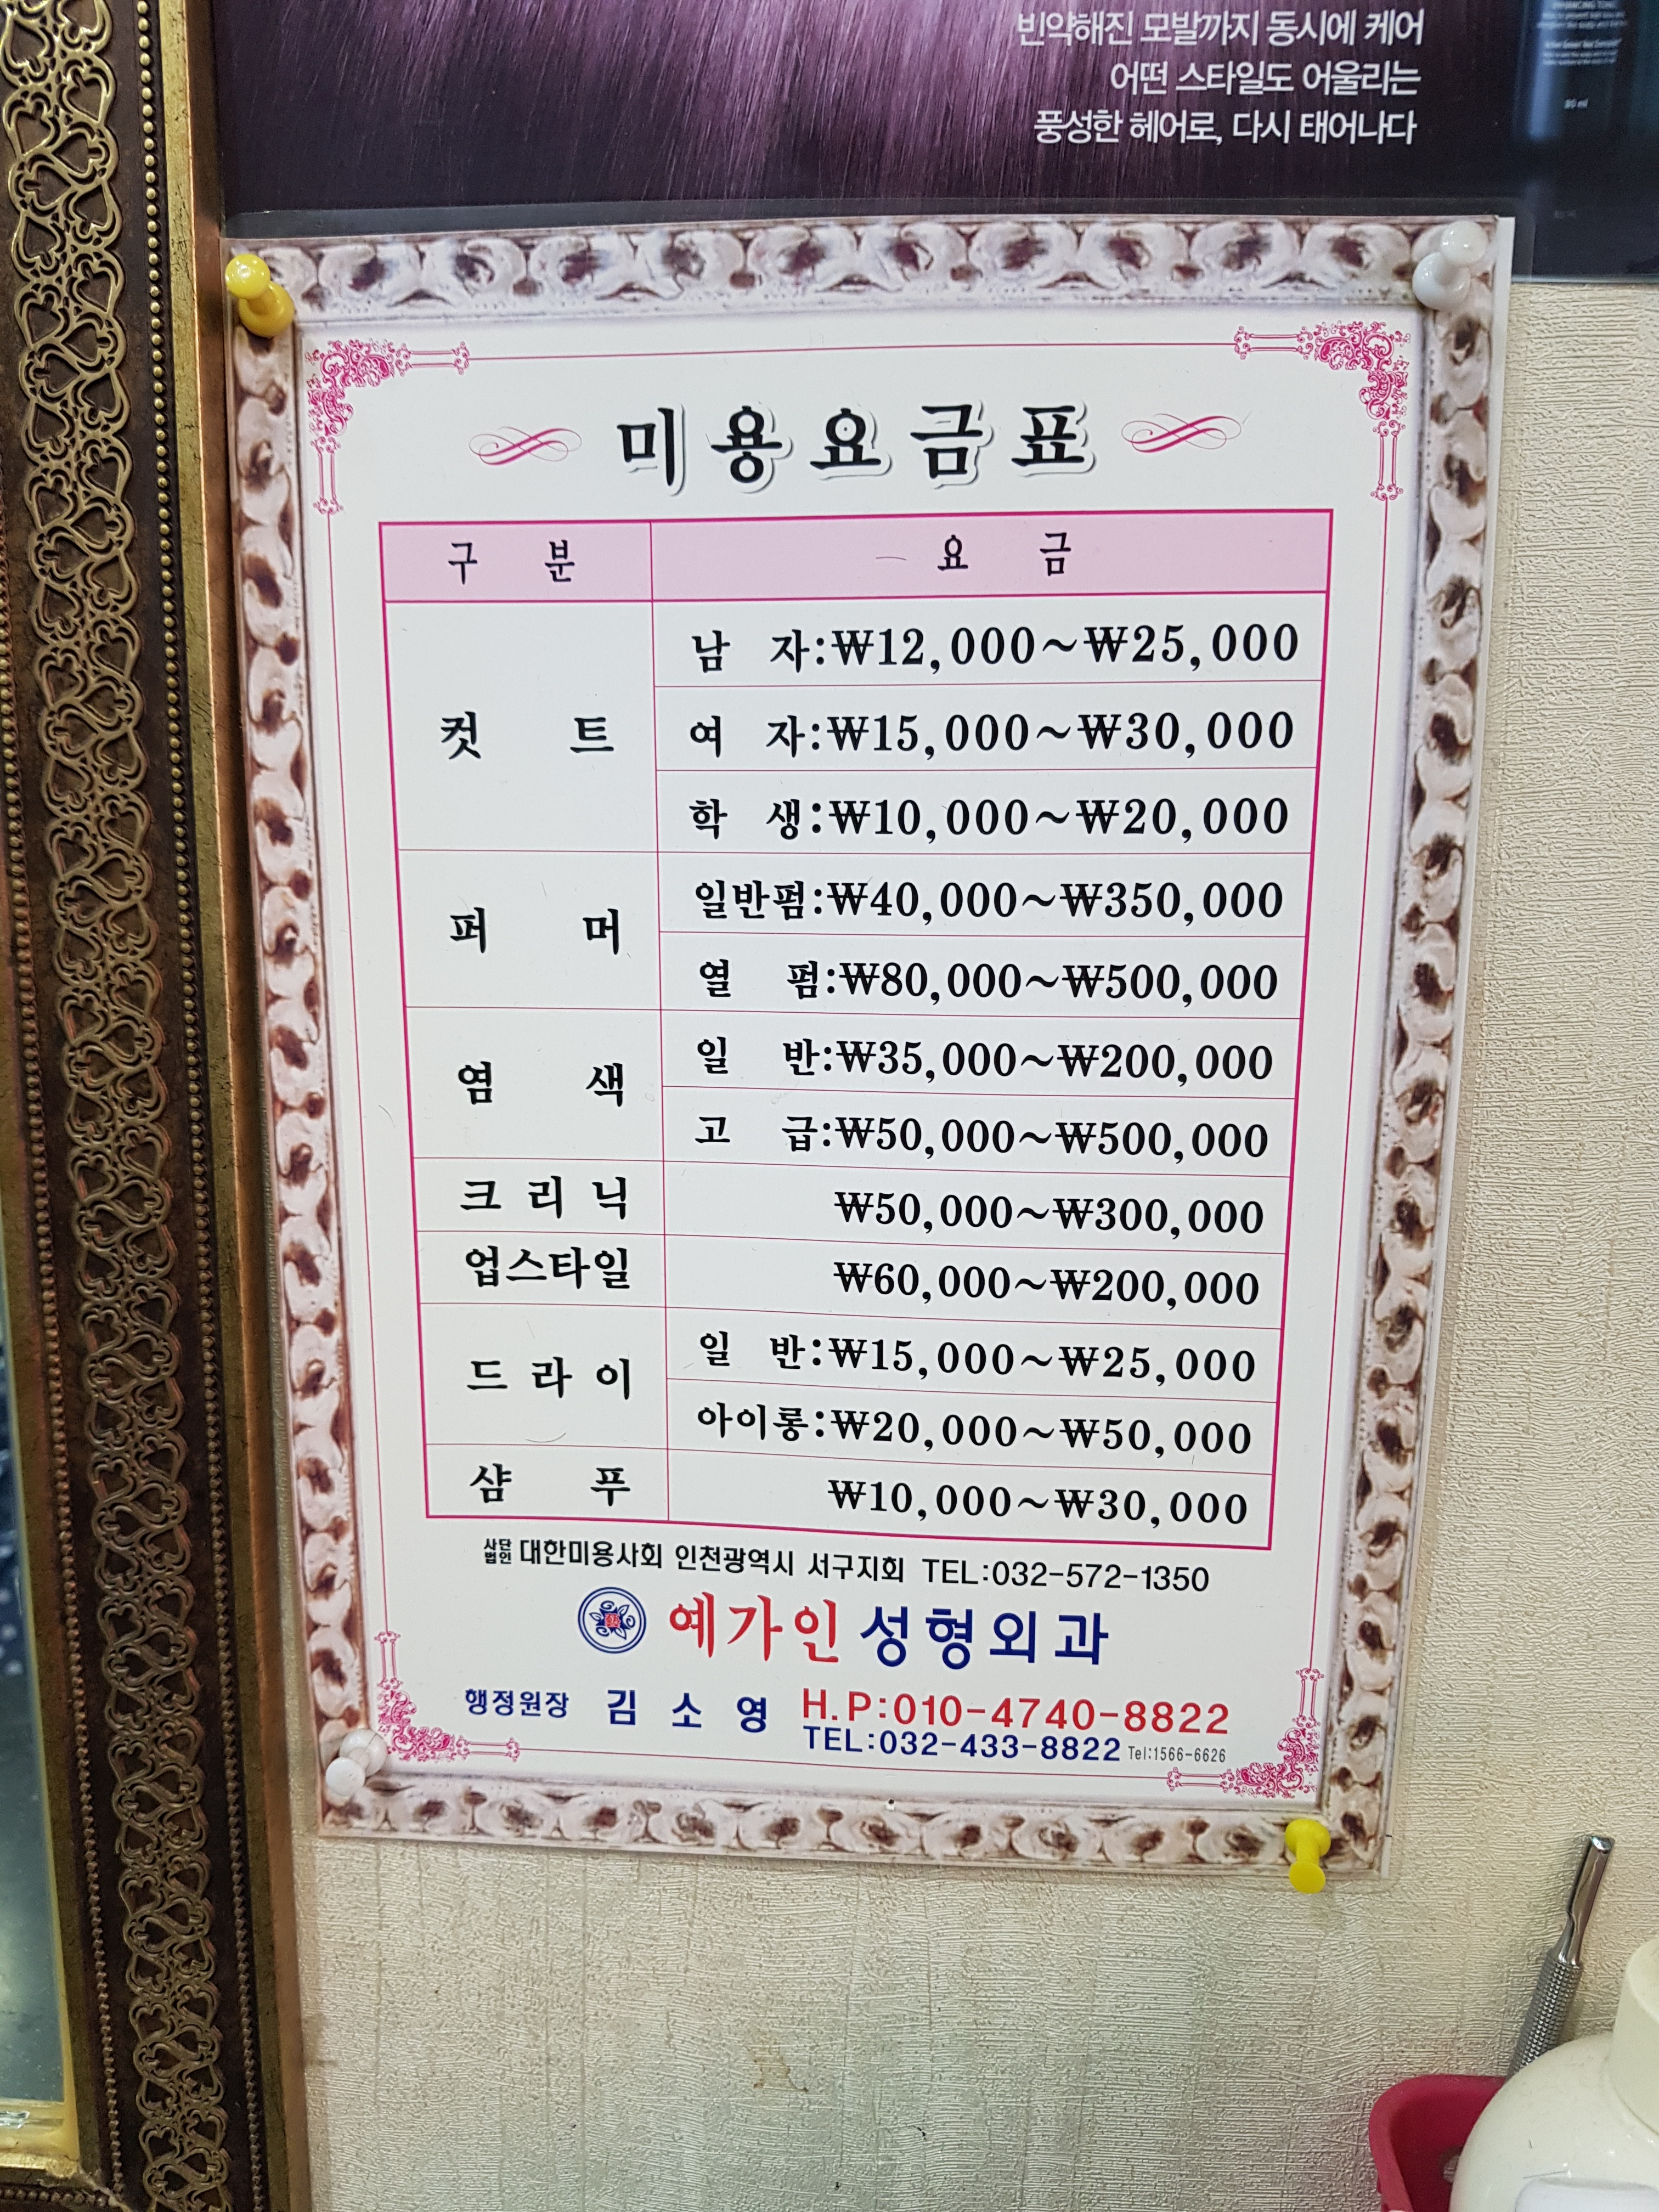 빈약해진 모발까지 동시에 케어
어떤 스타일도 어울리는
풍성한 헤어로, 다시 태어나다
80 ml
미용요금표
구 분 요 금
컷 트 남 자:₩12,000~₩25,000
여 자:₩15,000~₩30,000
학 생:₩10,000~₩20,000
퍼 머 일반펌:₩40,000~₩350,000
열 펌:₩80,000~₩500,000
염 색 일 반:₩35,000~₩200,000
고 급:₩50,000~₩500,000
크 리 닉 ₩50,000~₩300,000
업스타일 ₩60,000~₩200,000
드 라 이 일 반:₩15,000~₩25,000
아이롱:₩20,000~₩50,000
샴 푸 ₩10,000~₩30,000
사단법인 대한미용사회 인천광역시 서구지회 TEL:032-572-1350
예가인 성형외과
행정원장 김 소 영 H.P:010-4740-8822
TEL:032-433-8822 Tel:1566-6626